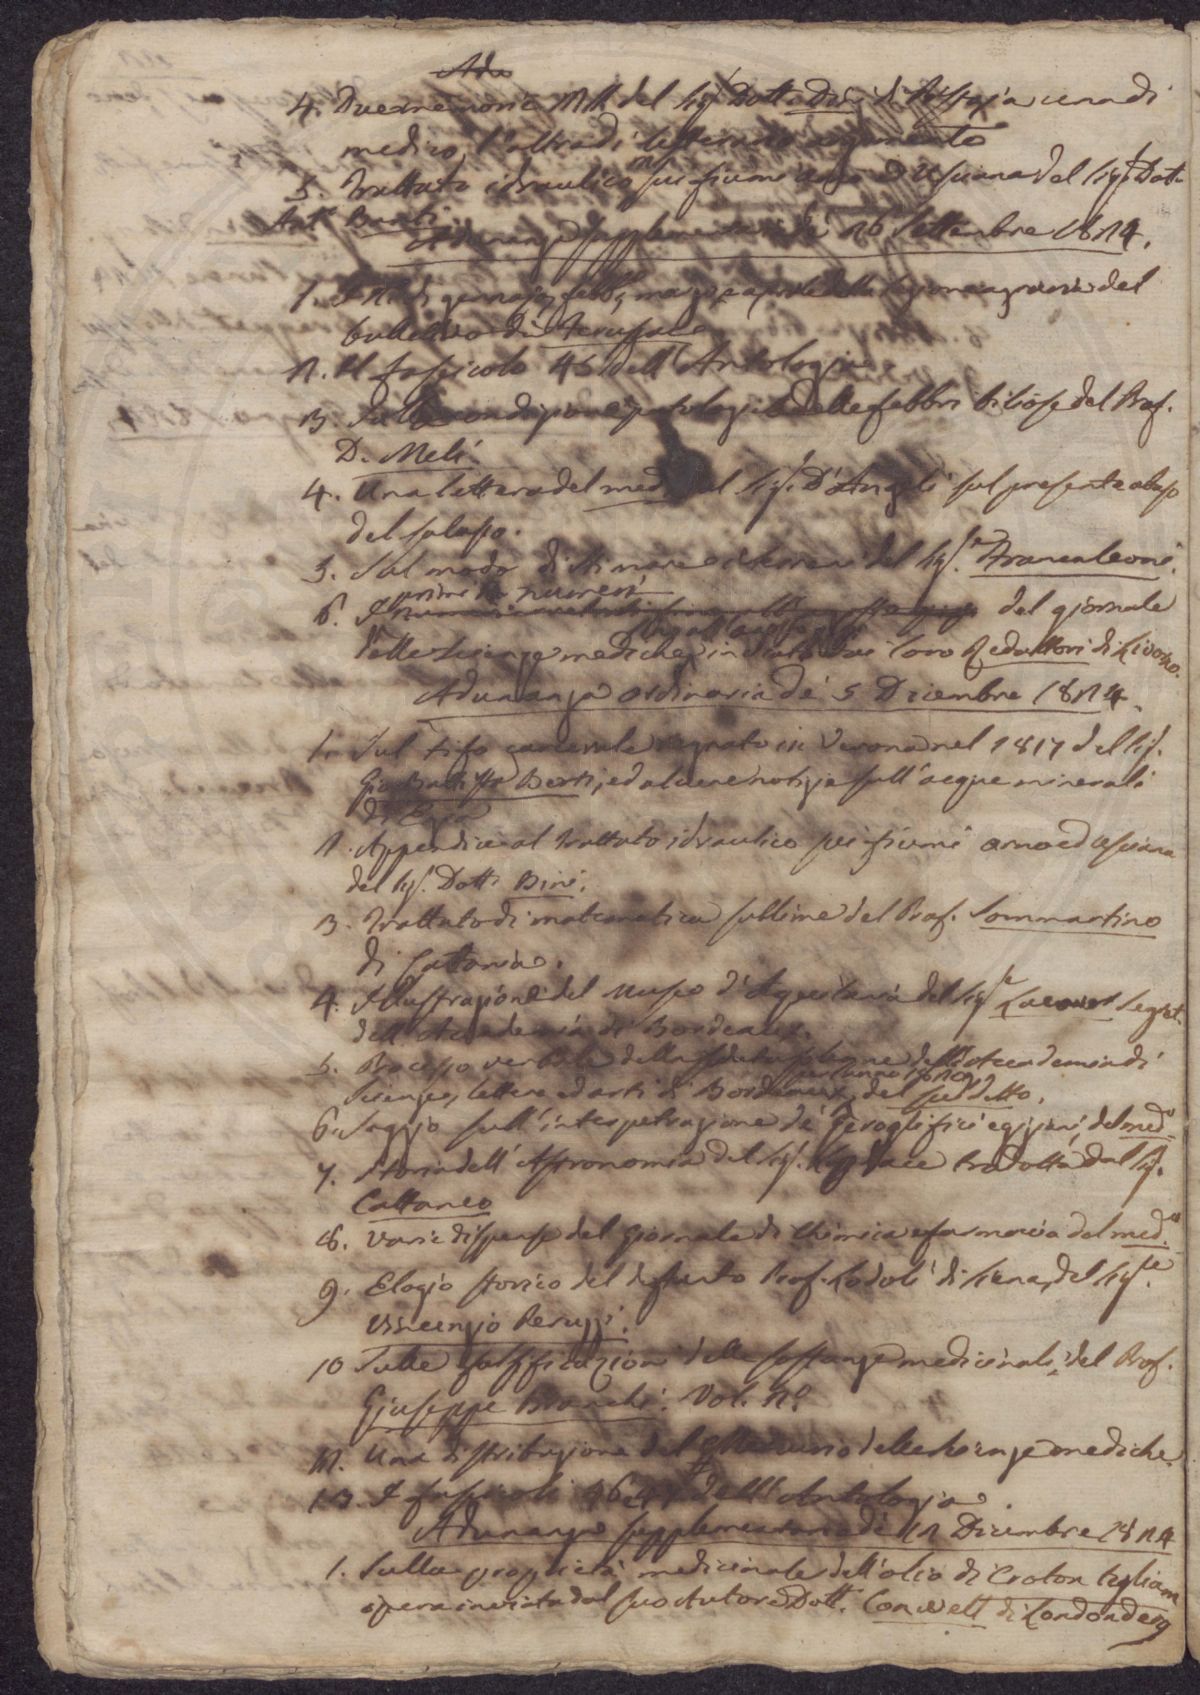 4. Due memorie MSS. del Sig. Dott. di Pistoja una di
medico, l'altra di letterario argomento
5. Trattato idraulico sui fiumi Arno ed Usciana del Sig. Dott.
Ant. Bini.
Adunanza supplementaria de' 26 Settembre 1824.
1. di gennajo, febb., marzo, e aprile della agraria del
bullettino di Ferussac
2. Il fascicolo 45 dell'Antologia
3. Sulle condizioni patologiche delle febbri biliose del Prof.
D. Meli
4. Una lettera del med. al Sig. D'Angeli sul presente abuso
del salasso.
5. Sul modo di stimare i terreni del Sig. Francaleoni.
6. I primi numeri del giornale
delle Scienze mediche, dai loro Redattori di Livorno.
Adunanza ordinaria de' 5 Dicembre 1824.
1. Sul tifo carcerale regnato in Verona nel 1817 del Sig.
Gio. Batista Berti, ed alcune notizie sull'acque minerali
di
2. Appendice al trattato idraulico sui fiumi Arno ed Usciana
del Sig. Dott. Bini.
3. Trattato di matematica sublime del Prof. Sammartino
di Catania.
4. Illustrazione del Museo d'Aquitania del Sig. Segret.
dell'Accademia di Bordeaux.
5. Processo verbale della seduta solenne dell'Accademia di
Scienze, lettere ed arti di Bordeaux, del suddetto.
6. Saggio sull'interpetrazione de' geroglifici egiziani, del med.
7. Storia dell'Astronomia del Sig. Laplace tradotta dal Sig.
Cattaneo
8. Varie dispense del Giornale di Chimica e farmacia del med.
9. Elogio storico del defunto Prof. Lodoli di Siena, del Sig.
Vincenzio Peruzzi.
10 Sulle falsificazioni delle sostanze medicinali, del Prof.
Giuseppe Branchi. Vol. 2.
12. Una distribuzione del delle Scienze mediche
13. I fascicoli 46, 47 dell'Antologia.
Adunanza supplementaria de' 12 Dicembre 1824
1. Sulla proprietà medicinale dell'olio di Croton tiglium
opera inviata dal suo Autore Dott. Conwell di Londonderg